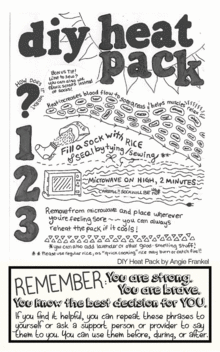 diy heat
pack
HOW DOES
BONUS TIP!
?
Replacement blood flow to
1
Fill a SOCK with RICE
& seal by tying / sewing**
2
MICROWAVE ON HIGH, 2 MINUTES
3
Remove from microwave and place wherever
you're feeling sore ~ you can always
reheat the pack if it cools!
*you can also add lavender or other good-smelling stuff!
**Please use regular rice, no "quick cooking" rice
DIY Heat Pack by Angie Frankel
REMEMBER: You are strong.
You are brave.
You know the best decision for YOU.
If you find it helpful, you can repeat these phrases to
yourself or ask a support person or provider to say
them to you. You can use them before, during, or after.